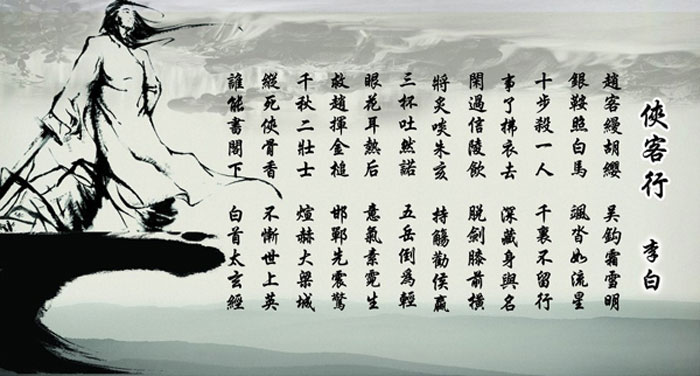 俠客行 李白
趙客縵胡纓 吳鈎霜雪明
銀鞍照白馬 颯沓如流星
十步殺一人 千裏不留行
事了拂衣去 深藏身與名
閑過信陵飲 脫劍膝前橫
將炙啖朱亥 持觴勸侯嬴
三杯吐然諾 五岳倒爲輕
眼花耳熱后 意氣素霓生
救趙揮金槌 邯鄲先震驚
千秋二壯士 煊赫大梁城
縱死俠骨香 不慚世上英
誰能書閣下 白首太玄經